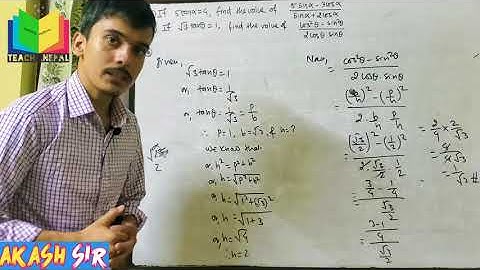 TEACH NEPAL
If 5tanα=4, find the value of 5sinα-3cosα / sinα+2cosα
If √3 tanθ=1, find the value of cos²θ-sin²θ / 2cosθ.sinθ
given,
√3 tanθ=1
or, tanθ=1/√3
or, tanθ=1/√3=p/b
∴ p=1, b=√3, & h=?
We know that:
or, h²=p²+b²
or, h=√p²+b²
or, h=√1²+(√3)²
or, h=√1+3
or, h=√4
∴h=2
Now,
cos²θ-sin²θ / 2cosθ.sinθ
= (b/h)²-(p/h)² / 2.b/h.p/h
= (√3/2)²-(1/2)² / 2.√3/2.1/2
= 3/4-1/4 / √3/2
= 3-1/4 / √3/2
= 2/4×2/√3
= 4/4√3
= 1/√3 #
AKASH SIR